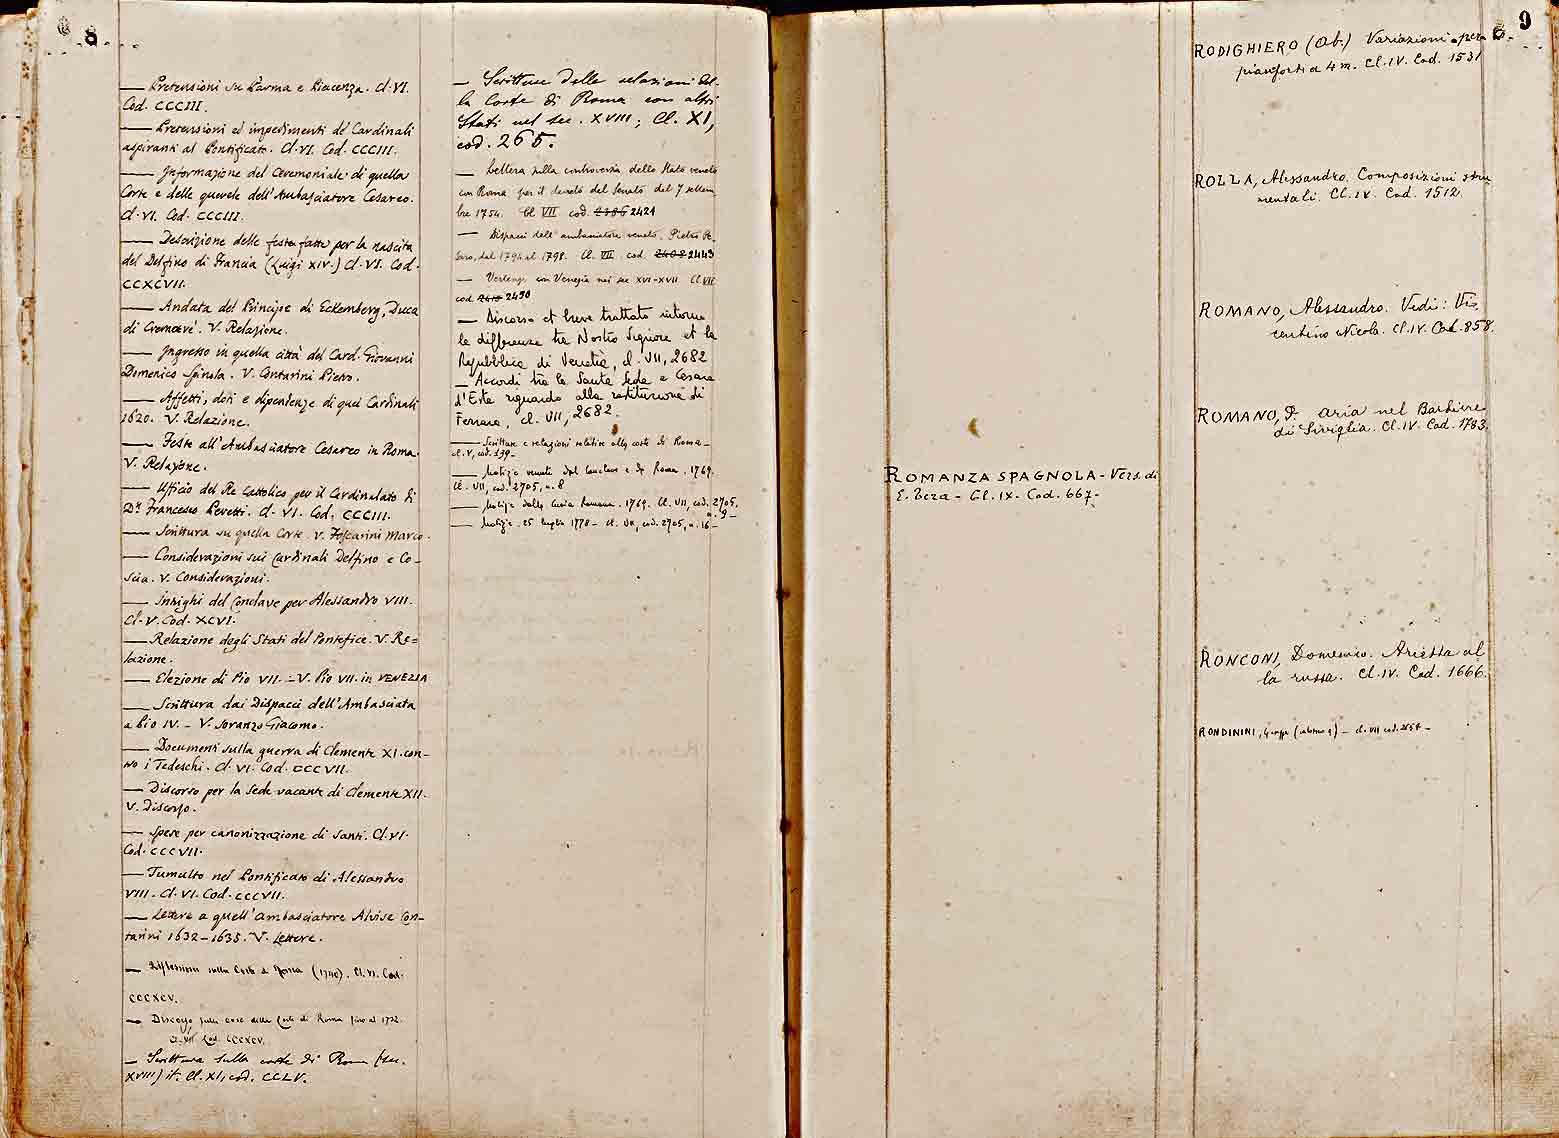 8
— Pretensioni su Parma e Piacenza. Cl. VI.
Cod. CCCIII.
— Pretensioni ed impedimenti de' Cardinali
aspiranti al Pontificato. Cl. VI. Cod. CCCIII.
— Informazione del Ceremoniale di quella
Corte e delle querele dell'Ambasciatore Cesareo.
Cl. VI. Cod. CCCIII.
— Descrizione delle feste fatte per la nascita
del Delfino di Francia (Luigi XIV.) Cl. VI. Cod.
CCXCVII.
— Andata del Principe di Eckemberg, Duca
di V. Relazione.
— Ingresso in quella città del Card. Giovanni
Domenico Spinola. V. Contarini Pietro.
— Affetti, doti e dipendenze di quei Cardinali
1620. V. Relazione.
— Feste all'Ambasciatore Cesareo in Roma.
V. Relazione.
— Ufficio del Re Cattolico per il Cardinalato di
Dn Francesco Peretti. Cl. VI. Cod. CCCIII.
— Scrittura su quella Corte. V. Foscarini Marco.
— Considerazioni sui Cardinali Delfino e Co-
scia. V. Considerazioni.
— Intrighi del Conclave per Alessandro VIII.
Cl. V. Cod. XCVI.
— Relazione degli Stati del Pontefice. V. Re=
lazione.
— Elezione di Pio VII. - V. Pio VII. in VENEZIA
— Scrittura dai Dispacci dell'Ambasciata
a Pio IV. - V. Soranzo Giacomo.
— Documenti sulla guerra di Clemente XI. con-
tro i Tedeschi. Cl. VI. Cod. CCCVII.
— Discorso per la Sede vacante di Clemente XII.
V. Discorso.
— Spese per canonizzazione di Santi. Cl. VI.
Cod. CCCVII.
— Tumulto nel Pontificato di Alessandro
VIII. Cl. VI. Cod. CCCVII.
— Lettere a quell'Ambasciatore Alvise Con-
tarini 1632-1635. V. Lettere.
— Riflessioni sulla Corte di Roma (1740). Cl. VI. Cod.
CCCXCV.
— Discorso sulle cose della Corte di Roma fino al 1732.
Cl. VII. Cod. CCCXCV.
— Scrittura sulla corte di Roma (sec.
XVIII) it. Cl. XI, cod. CCLV.
— Scritture delle relazioni del-
la Corte di Roma con altri
Stati nel sec. XVIII; Cl. XI,
cod. 265.
— Lettera sulla controversia dello Stato veneto
con Roma per il decreto del Senato del 7 settem
bre 1754. Cl VII cod. 2386 2421
— Dispacci dell'ambasciatore veneto, Pietro Pe-
saro, dal 1794 al 1798. Cl. VII cod. 2408 2443
— Vertenze con Venezia nei sec XVI-XVII Cl VII
cod. 2450
— Discorso et breve trattato intorno
le differenze tra Nostro Signore et la
Repubblica di Venetia, cl. VII, 2682
— Accordi tra la Santa Sede e Cesare
d'Este riguardo alla restituzione di
Ferrara, cl. VII, 2682.
— Scritture e relazioni relative alla corte di Roma -
cl. V, cod. 139 -
— Notizie venute dal Conclave e da Roma. 1769.
Cl. VII, cod. 2705, n. 8
— Notizie dalla Curia Romana. 1769. Cl. VII, cod. 2705,
n. 9 -
— Notizie. 25 luglio 1778 - cl. VII, cod. 2705, n. 16 -
ROMANZA SPAGNOLA - Vers. di
E. Teza - Cl. IX. Cod. 667 -
9
RODIGHIERO (Ab.) Variazioni per
pianoforti a 4 m. Cl. IV. Cod. 1531
ROLLA, Alessandro. Composizioni stru
mentali. Cl. IV. Cod. 1512.
ROMANO, Alessandro. Vedi: Vi=
centino Nicola. Cl. IV. Cod. 858.
ROMANO, P. Aria nel Barbiere
di Siviglia. Cl. IV. Cod. 1783.
RONCONI, Domenico. Arietta al
la russa. Cl. IV. Cod. 1666.
RONDININI, - cl. VII cod.